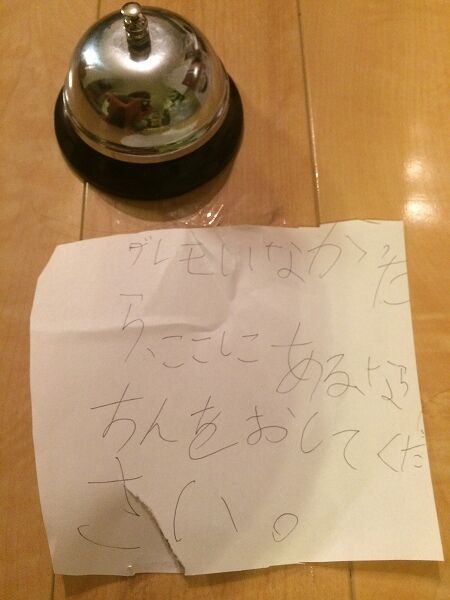 ダレモいなかった
ら、ここに ある なら
ちんをおしてくだ
さい。